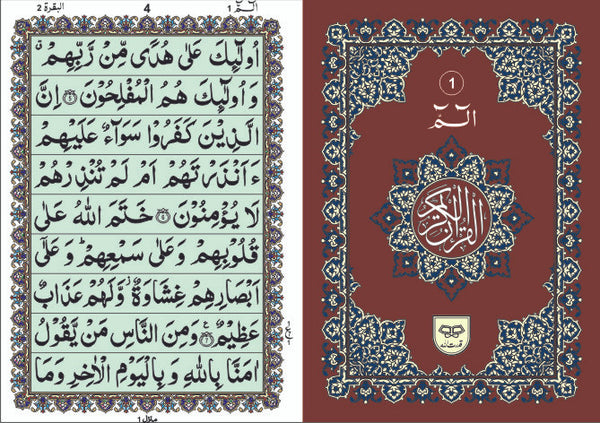 البقرة 2
4
الٓمّٓ 1
اُولٰٓئِكَ عَلٰى هُدًى مِّنْ رَّبِّهِمْ ۙ
وَ اُولٰٓئِكَ هُمُ الْمُفْلِحُوْنَ ۝ اِنَّ
الَّذِيْنَ كَفَرُوْا سَوَآءٌ عَلَيْهِمْ
ءَاَنْذَرْتَهُمْ اَمْ لَمْ تُنْذِرْهُمْ
لَا يُؤْمِنُوْنَ ۝ خَتَمَ اللّٰهُ عَلٰى
قُلُوْبِهِمْ وَ عَلٰى سَمْعِهِمْ ؕ وَ عَلٰٓى
اَبْصَارِهِمْ غِشَاوَةٌ ؗ وَّ لَهُمْ عَذَابٌ
عَظِيْمٌ ۝ وَ مِنَ النَّاسِ مَنْ يَّقُوْلُ
اٰمَنَّا بِاللّٰهِ وَ بِالْيَوْمِ الْاٰخِرِ وَمَا
منزل 1
1
الٓمّٓ
القرآن الكريم
قدرت الله